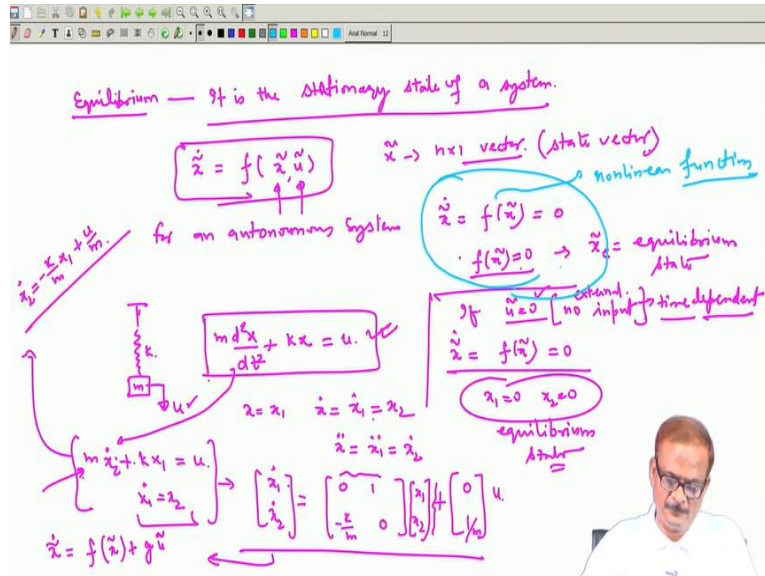 Arial Normal 12
Equilibrium — It is the stationary state of a system.
ẋ̃ = f(x̃, ũ)
x̃ → n×1 vector. (state vector)
nonlinear function
for an autonomous system
ẋ̃ = f(x̃) = 0
f(x̃)=0 → x̃e = equilibrium state
ẋ2 = -k/m x1 + u/m.
If ũ=0 [no external input] → time dependent
ẋ̃ = f(x̃) = 0
x1=0 x2=0
equilibrium state
k.
m
u
m d²x/dt² + kx = u.
x = x1 ẋ = ẋ1 = x2
ẍ = ẍ1 = ẋ2
m ẋ2 + k x1 = u.
ẋ1 = x2
[ẋ1 ẋ2] = [0 1 -k/m 0] [x1 x2] + [0 1/m] u.
ẋ̃ = f(x̃) + g ũ